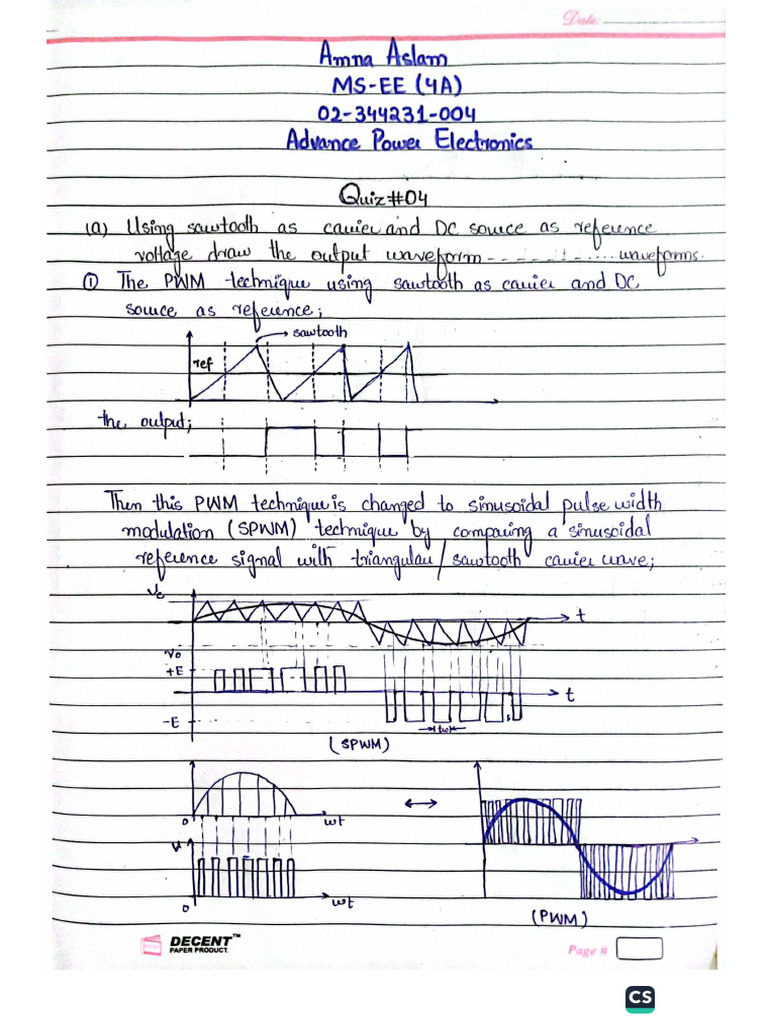 Date:
Amna Aslam
MS-EE (4A)
02-344231-004
Advance Power Electronics
Quiz#04
(a) Using sawtooth as carrier and DC source as reference
voltage draw the output waveform - - - - - - . . . . . waveforms.
① The PWM technique using sawtooth as carrier and DC
source as reference;
→ sawtooth
ref
the output;
Then this PWM technique is changed to sinusoidal pulse width
modulation (SPWM) technique by comparing a sinusoidal
reference signal with triangular/sawtooth carrier wave;
Vc
t
Vo
+E
t
-E
(SPWM)
0
wt
V
0
wt
(PWM)
DECENT™
PAPER PRODUCT
Page #
CS